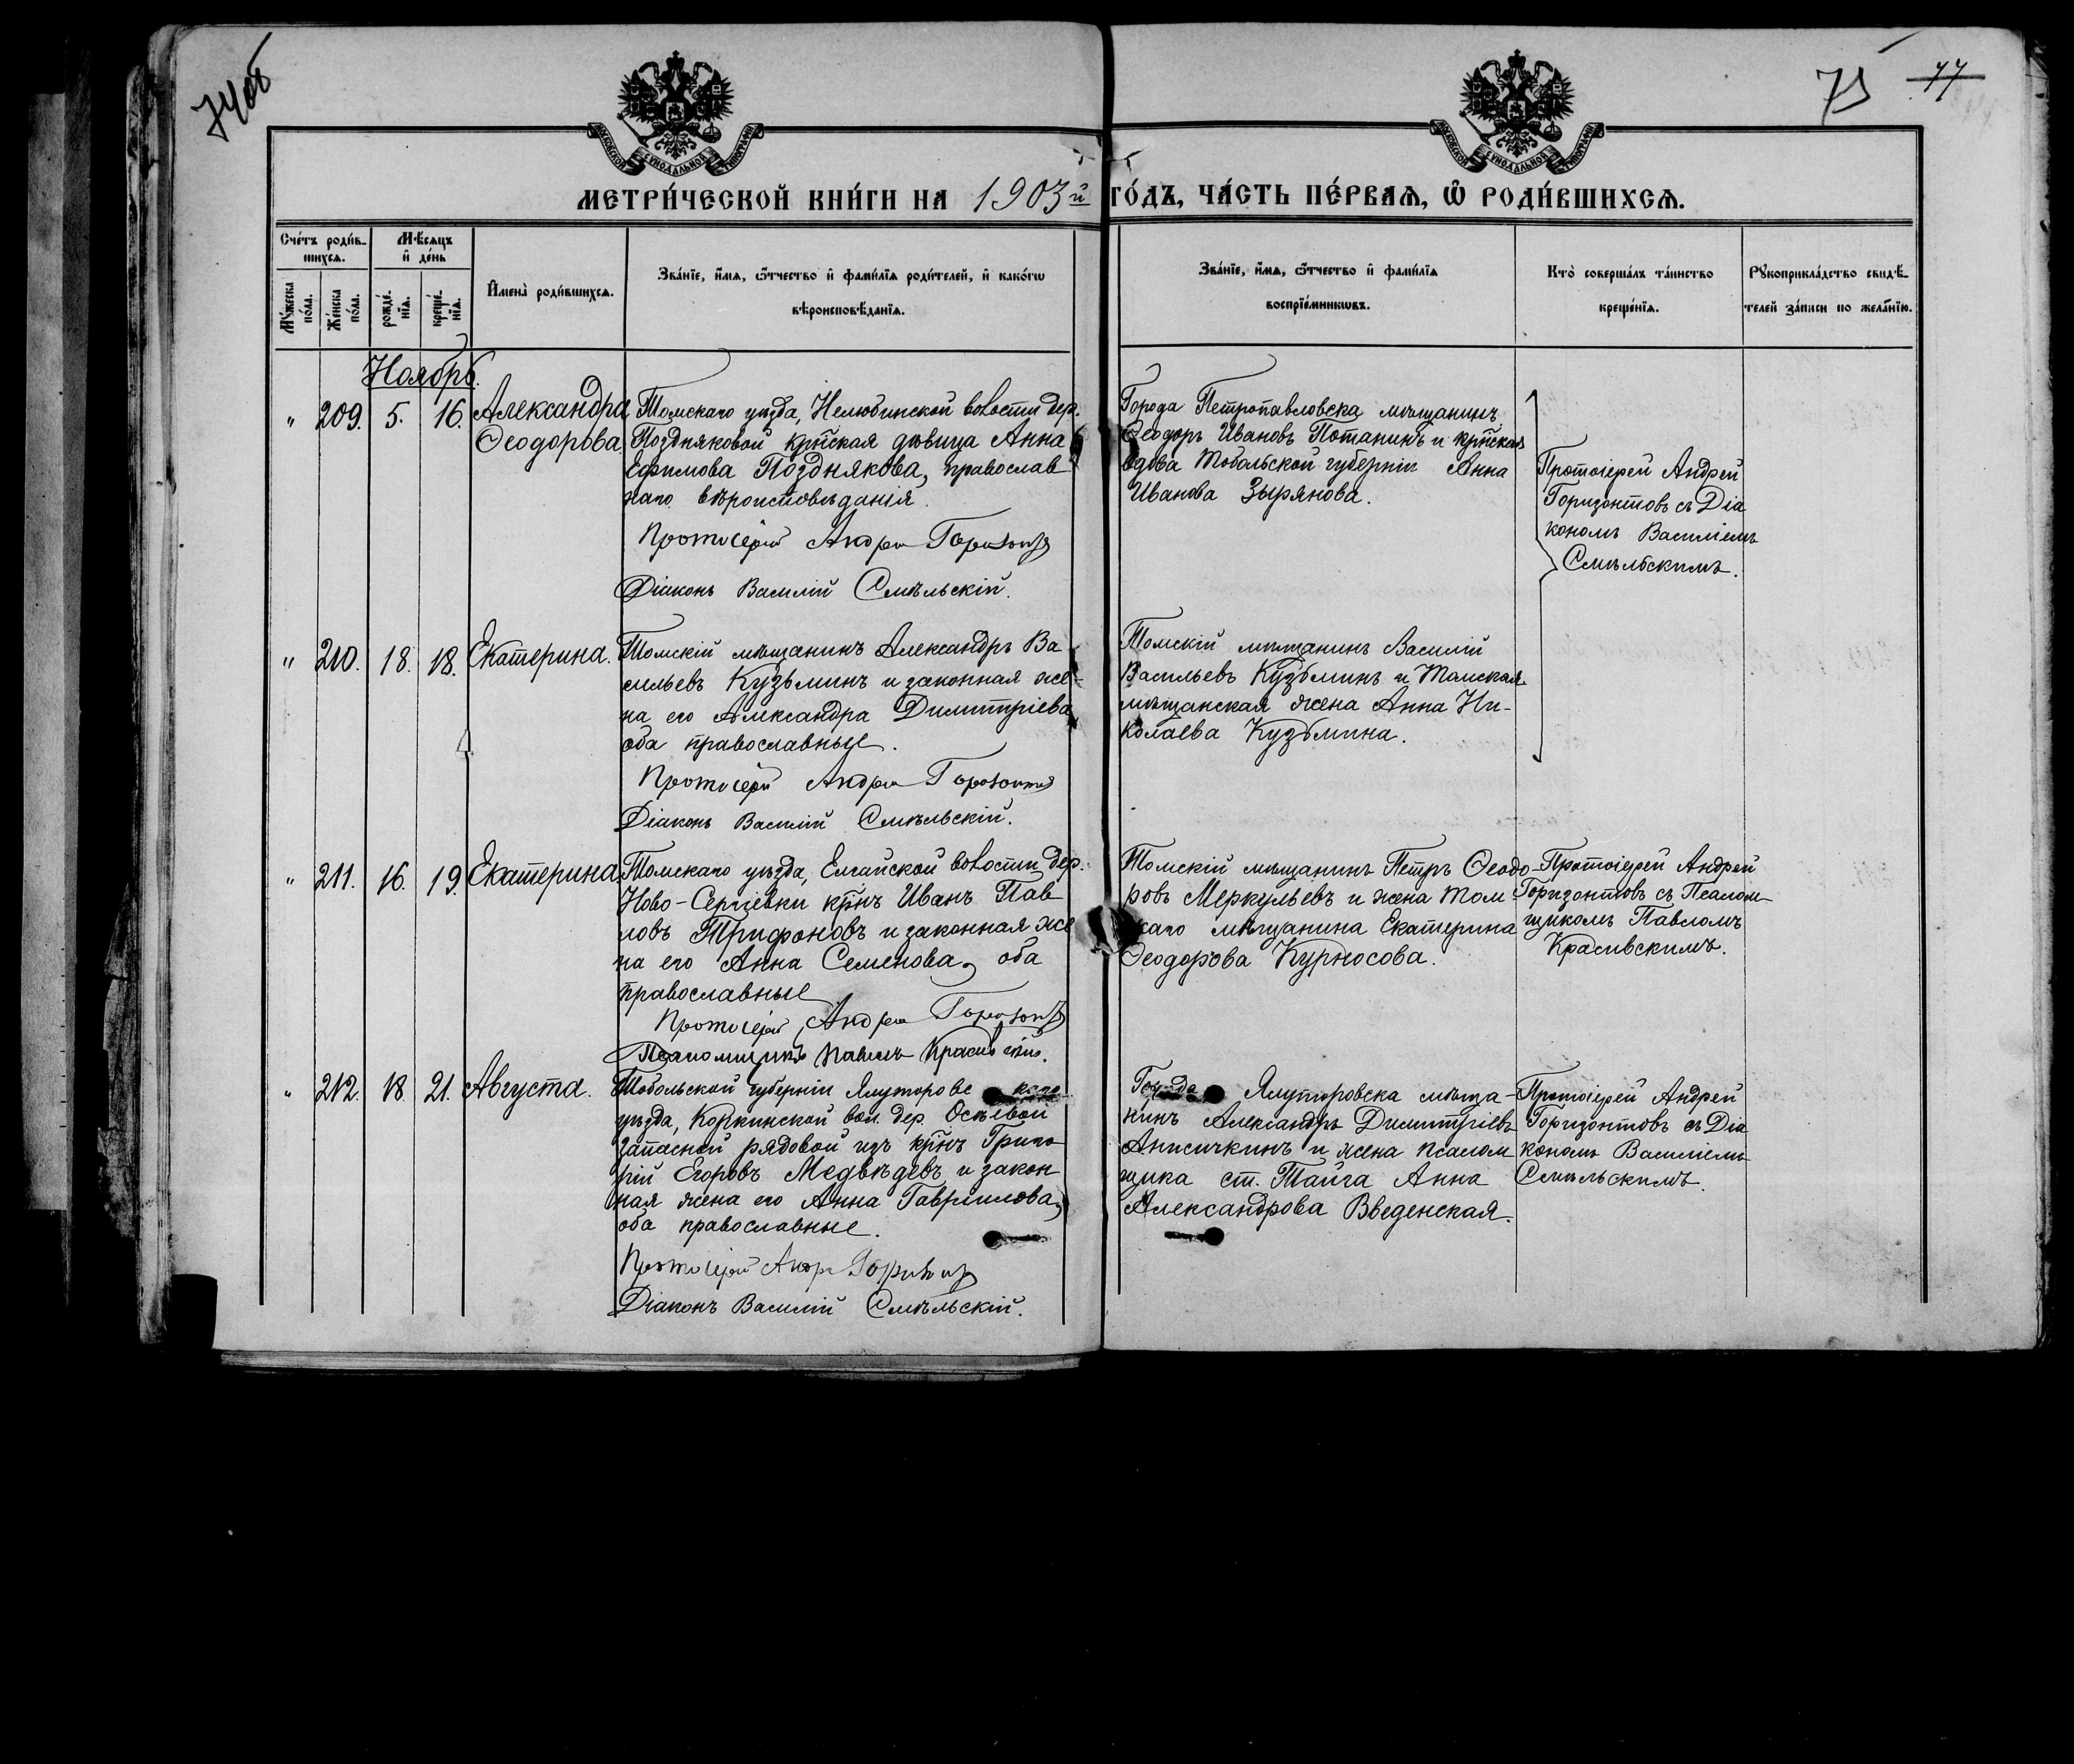 74об
75 77
МОСКОВСКОЙ СѴНОДАЛЬНОЙ ТИПОГРАФІИ
МОСКОВСКОЙ СѴНОДАЛЬНОЙ ТИПОГРАФІИ
МЕТРИ́ЧЕСКОЙ КНИ́ГИ НА 1903й ГО́ДЪ, ЧА́СТЬ ПЕ́РВАѦ, Ѡ҆ РОДИ́ВШИХСѦ.
Сче́тъ роди́в-
шихсѧ.
Мѣсѧцъ
и҆ де́нь
Мꙋ́жеска
по́ла.
Же́нска
по́ла.
рожде́-
нїѧ.
креще́-
нїѧ.
И҆мена̀ роди́вшихсѧ.
Зва́нїе, и҆́мѧ, ѻ҆́тчество и҆ фами́лїѧ роди́телей, и҆ како́гѡ
вѣроисповѣ́данїѧ.
Зва́нїе, и҆́мѧ, ѻ҆́тчество и҆ фами́лїѧ
воспрїе́мникѡвъ.
Кто̀ соверша́лъ та́инство
креще́нїѧ.
Рꙋкоприкла́дство свидѣ́-
телей за́писи по жела́нїю.
Ноябрь.
" 209. 5. 16. Александра
Ѳеодорова.
Томскаго уѣзда, Нелюбинской волости дер.
Поздняковой кр̃нская дѣвица Анна
Ефимова Позднякова, православ
наго вѣроисповѣданія.
Протоіерей Андрей Горизонтовъ
Діаконъ Василій Смѣльскій.
Города Петропавловска мѣщанинъ
Ѳеодоръ Ивановъ Потанинъ и кр̃нская
вдова Тобольской губерніи Анна
Иванова Зырянова.
Протоіерей Андрей
Горизонтовъ съ Діа
кономъ Василіемъ
Смѣльскимъ.
" 210. 18. 18. Екатерина.
Томскій мѣщанинъ Александръ Ва
сильевъ Кузьминъ и законная же-
на его Александра Димитріева,
оба православные.
Протоіерей Андрей Горизонтовъ
Діаконъ Василій Смѣльскій.
Томскій мѣщанинъ Василій
Васильевъ Кузьминъ и Томская
мѣщанская жена Анна Ни-
колаева Кузьмина.
" 211. 16. 19. Екатерина.
Томскаго уѣзда, Елгайской волости дер.
Ново-Сергіевки кр̃нъ Иванъ Пав
ловъ Трифоновъ и законная же
на его Анна Семенова, оба
православные.
Протоіерей Андрей Горизонтовъ
Псаломщикъ Павелъ Красивскій.
Томскій мѣщанинъ Петръ Ѳеодо-
ровъ Меркульевъ и жена Том-
скаго мѣщанина Екатерина
Ѳеодорова Курносова.
Протоіерей Андрей
Горизонтовъ съ Псалом-
щикомъ Павломъ
Красивскимъ.
" 212. 18. 21. Августа.
Тобольской губерніи Ялуторовскаго
уѣзда, Коркинской вол. дер. Осѣевой
запасной рядовой изъ кр̃нъ Григо
рій Егоровъ Медвѣдевъ и закон
ная жена его Анна Гавриилова,
оба православные.
Протоіерей Андрей Горизонтовъ
Діаконъ Василій Смѣльскій.
Города Ялуторовска мѣща-
нинъ Александръ Димитріевъ
Анисичкинъ и жена псалом
щика ст. Тайга Анна
Александрова Введенская.
Протоіерей Андрей
Горизонтовъ съ Діа
кономъ Василіемъ
Смѣльскимъ.